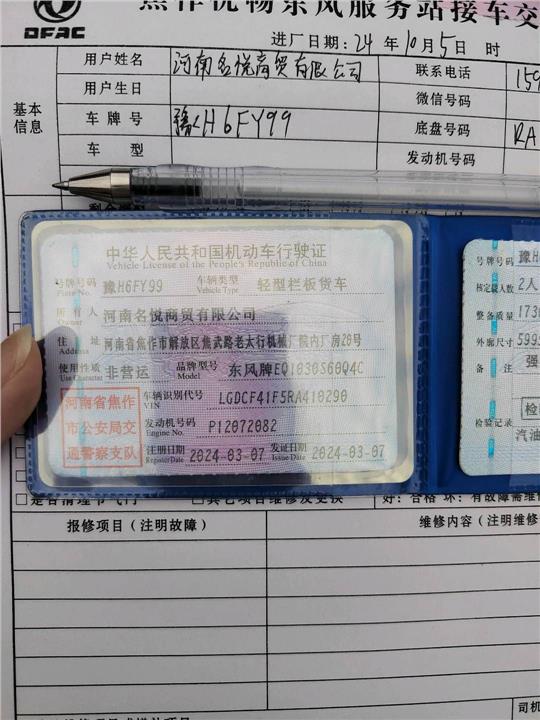 焦作优畅东风服务站接车交
DFAC
进厂日期：24 年 10 月 5 日 时
基本信息
用户姓名 河南名悦商贸有限公司 联系电话 159
用户生日 微信号码
车牌号 豫H6FY99 底盘号码 RA
车型 发动机号码
中华人民共和国机动车行驶证
Vehicle License of the People's Republic of China
号牌号码 豫H6FY99 车辆类型 轻型栏板货车
Plate No. Vehicle Type
所有人 河南名悦商贸有限公司
Owner
住址 河南省焦作市解放区焦武路老太行机械厂院内厂房28号
Address
使用性质 非营运 品牌型号 东风牌EQ1030S60Q4C
Use Character Model
河南省焦作
市公安局交
通警察支队
车辆识别代号 LGDCF41F5RA410290
VIN
发动机号码 P12072082
Engine No.
注册日期 2024-03-07 发证日期 2024-03-07
Register Date Issue Date
号牌号码 豫H
核定载人数 2人
整备质量 1730
外廓尺寸 599
备注 强
检验记录 检
汽油
报修项目（注明故障） 维修内容（注明维修
司机